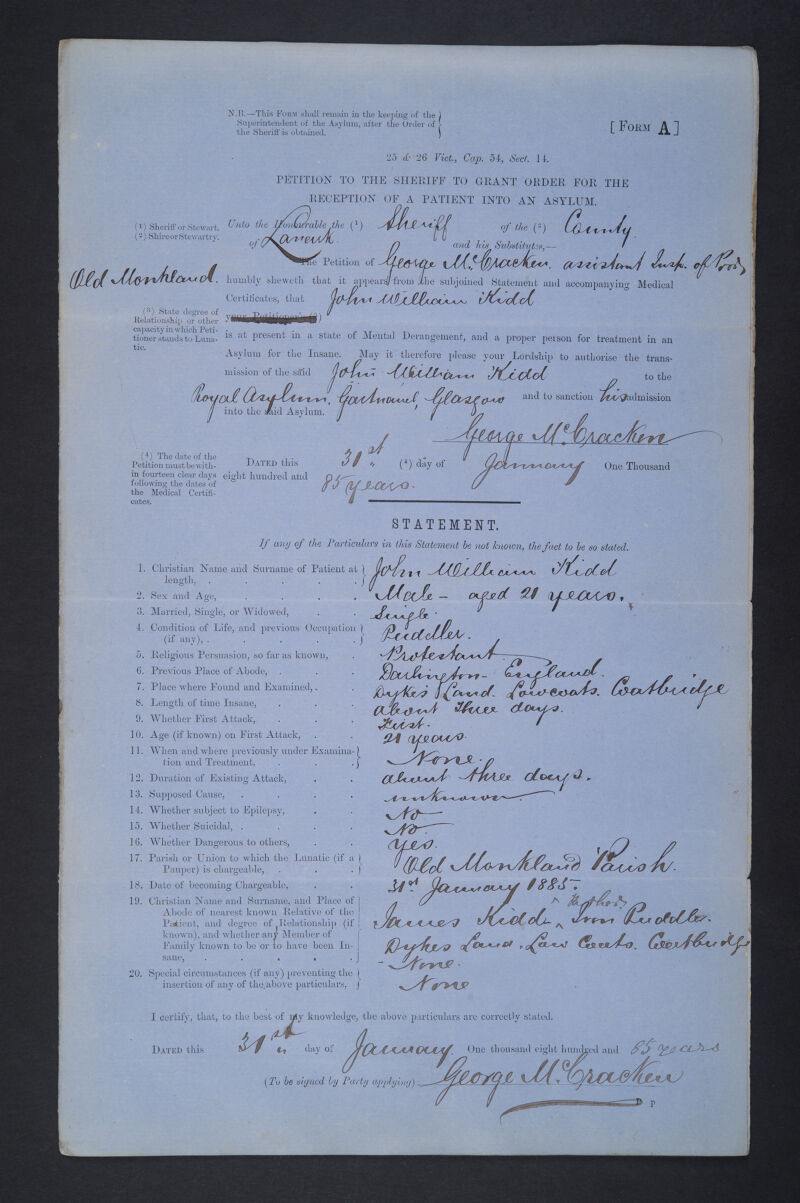 N.B.—This Form shall remain in the keeping of the
Superintendent of the Asylum, after the Order of
the Sheriff is obtained.
[ Form A ]
25 & 26 Vict., Cap. 54, Sect. 14.
PETITION TO THE SHERIFF TO GRANT ORDER FOR THE
RECEPTION OF A PATIENT INTO AN ASYLUM.
(1) Sheriff or Stewart.
(2) Shire or Stewartry.
Unto the Honourable the (1) Sheriff of the (2) County
of Lanark and his Substitutes,—
The Petition of George McCracken assistant Insp. of Poor
Old Monkland. humbly sheweth that it appears from the subjoined Statement and accompanying Medical
Certificates, that John William Kidd
(3) State degree of
Relationship or other
capacity in which Peti-
tioner stands to Luna-
tic.
your Petitioner's (3)
is at present in a state of Mental Derangement, and a proper person for treatment in an
Asylum for the Insane. May it therefore please your Lordship to authorise the trans-
mission of the said John William Kidd to the
Royal Asylum, Gartnavel, Glasgow and to sanction his admission
into the said Asylum.
George McCracken
(4) The date of the
Petition must be with-
in fourteen clear days
following the dates of
the Medical Certifi-
cates.
Dated this 31st (4) day of January One Thousand
eight hundred and 85 years.
STATEMENT.
If any of the Particulars in this Statement be not known, the fact to be so stated.
1. Christian Name and Surname of Patient at
length, John William Kidd
2. Sex and Age, Male - aged 21 years.
3. Married, Single, or Widowed, Single
4. Condition of Life, and previous Occupation
(if any), Puddler.
5. Religious Persuasion, so far as known, Protestant
6. Previous Place of Abode, Darlington - England.
7. Place where Found and Examined, Dykes Land. Lowcoats. Coatbridge
8. Length of time Insane, about three days.
9. Whether First Attack, First.
10. Age (if known) on First Attack, 21 years
11. When and where previously under Examina-
tion and Treatment, None.
12. Duration of Existing Attack, about three days.
13. Supposed Cause, unknown
14. Whether subject to Epilepsy, No
15. Whether Suicidal, No.
16. Whether Dangerous to others, Yes.
17. Parish or Union to which the Lunatic (if a
Pauper) is chargeable, Old Monkland Parish.
18. Date of becoming Chargeable, 31st January 1885.
19. Christian Name and Surname, and Place of
Abode of nearest known Relative of the
Patient, and degree of Relationship (if
known), and whether any Member of
Family known to be or to have been In-
sane,
James Kidd Iron Puddler.
Dykes Land. Low Coats. Coatbridge
- None.
20. Special circumstances (if any) preventing the
insertion of any of the above particulars, None
I certify, that, to the best of my knowledge, the above particulars are correctly stated.
Dated this 31st day of January One thousand eight hundred and 85 years
(To be signed by Party applying) George McCracken
D P